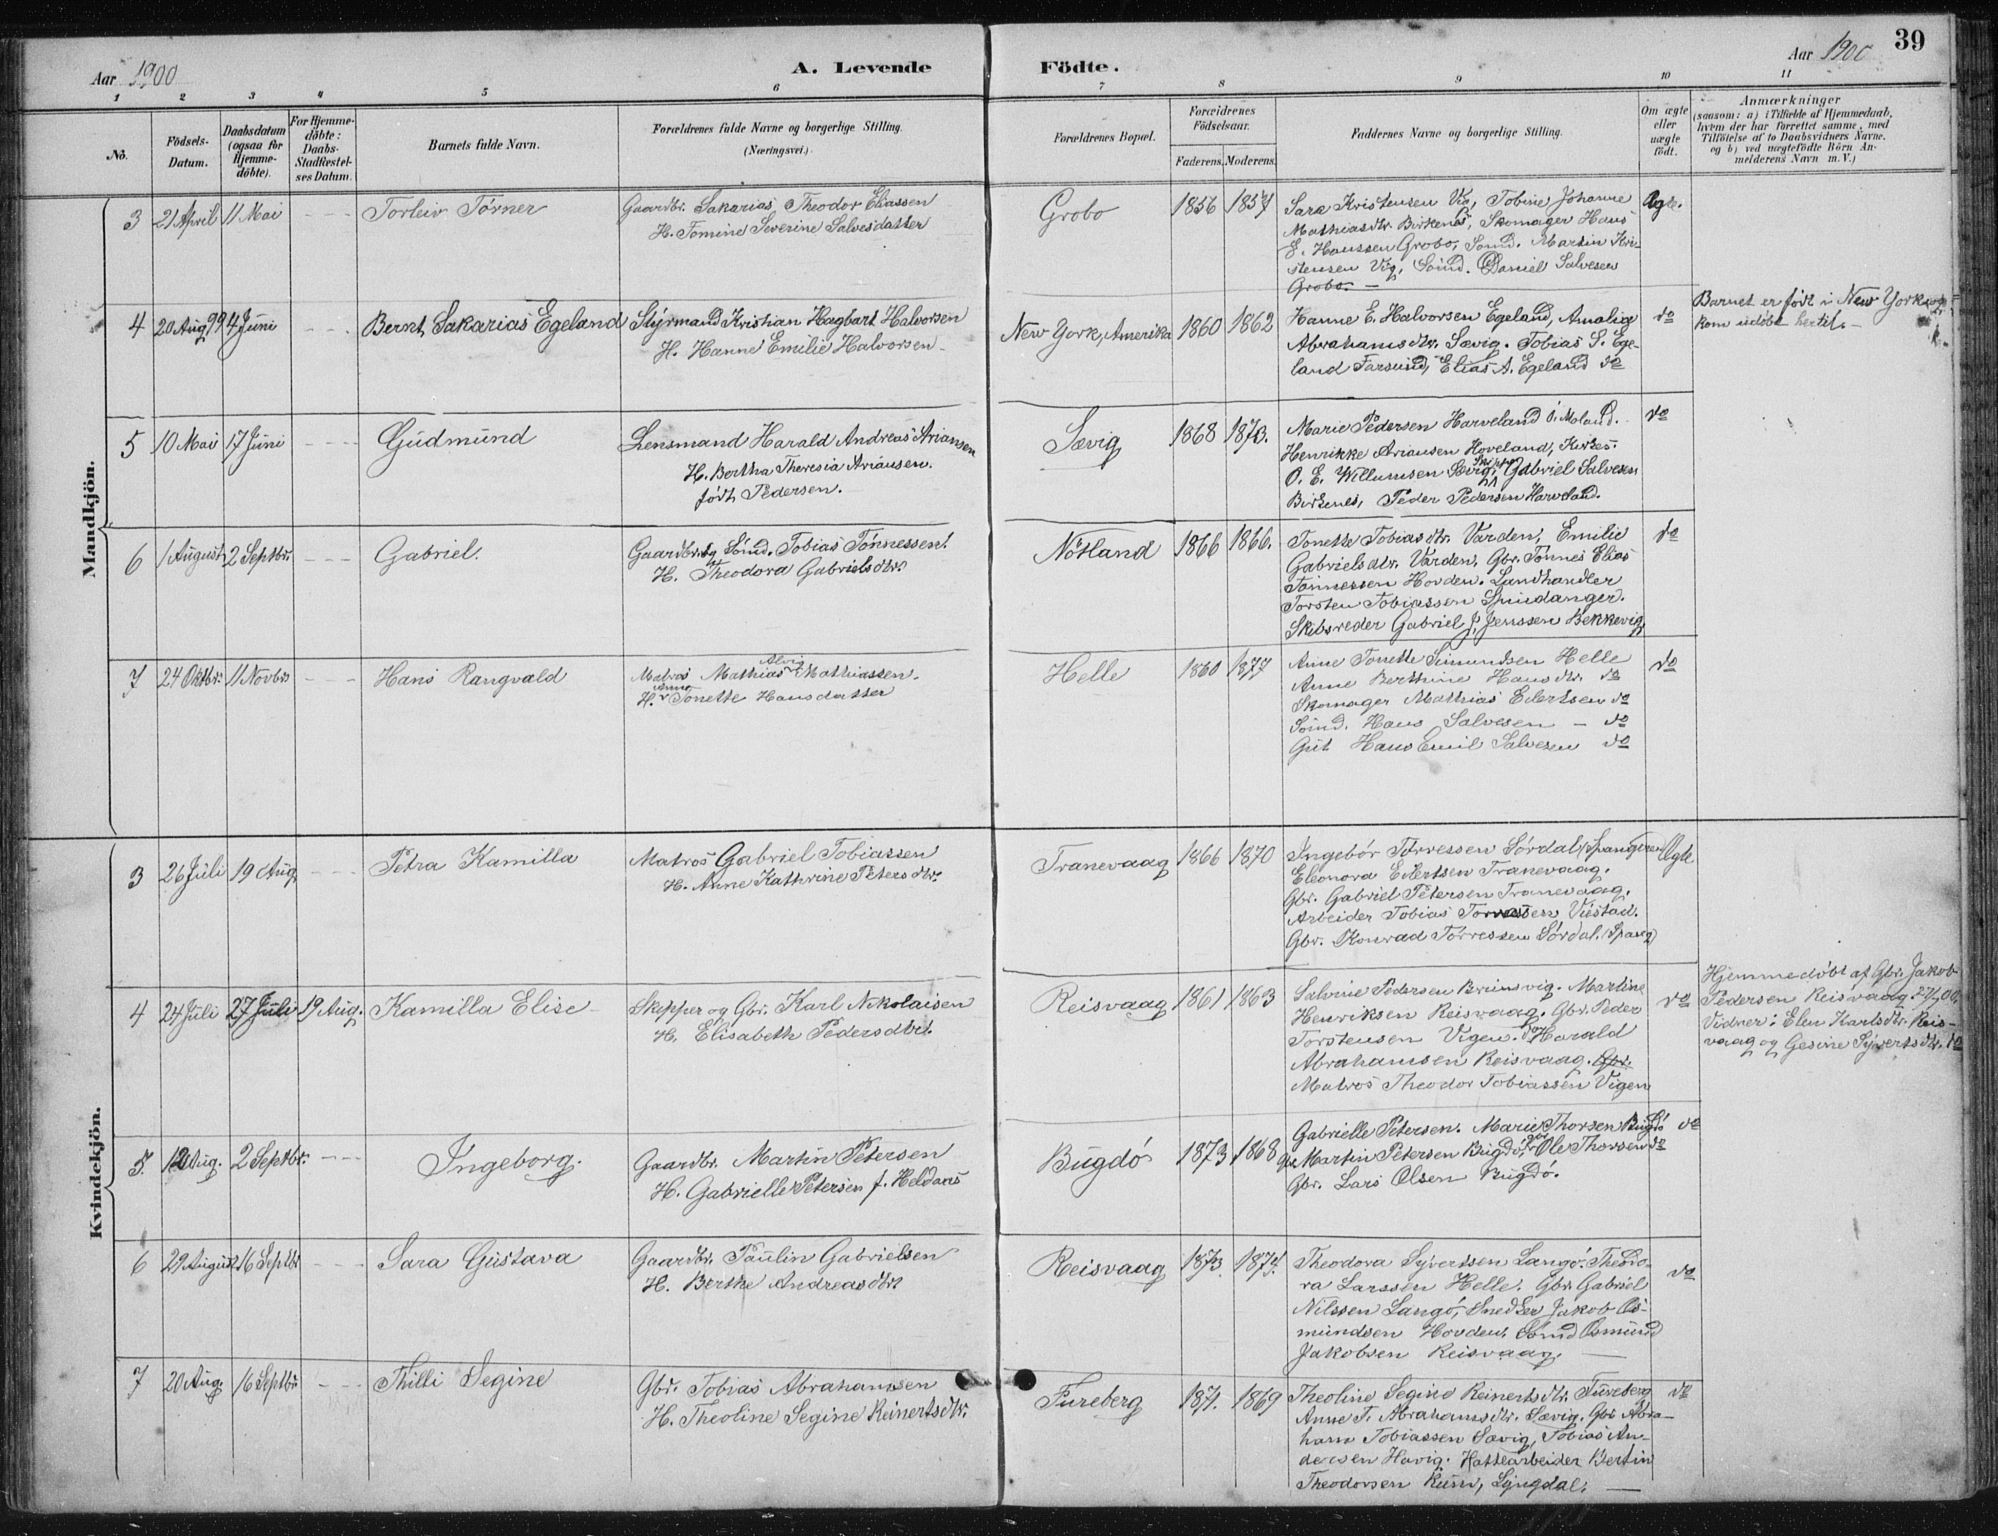 Aar 1900
A. Levende Födte.
Aar 1900
39
1 2 3 4 5 6 7 8 9 10 11
No.
Födsels-
Datum.
Daabsdatum
(ogsaa for
Hjemme-
döbte).
For Hjemme-
döbte:
Daabs-
Stadfæstel-
ses Datum.
Barnets fulde Navn.
Forældrenes fulde Navne og borgerlige Stilling.
(Næringsvei.)
Forældrenes Bopæl.
Forældrenes
Födselsaar.
Faderens. Moderens.
Faddernes Navne og borgerlige Stilling.
Om ægte
eller
uægte
födt.
Anmærkninger
(saasom: a) i Tilfælde af Hjemmedaab,
hvem der har forrettet samme, med
Tilföielse af to Daabsvidners Navne,
og b) ved uægtefödte Börn An-
melderens Navn m. V.)
Mandkjön.
3 21 April 11 Mai - - - Torleiv Tørner
Gaardbr. Sakarias Theodor Eliassen
H. Tomine Severine Salvesdatter
Grobo 1856 1857
Sara Kristensen Vig, Tobine Johanne
Mathiasdtr. Birkenes, Skomager Hans
E. Hanssen Grobo, Sömd. Martin Kri-
stensen Vig, Sömd. Daniel Salvesen
Grobo. -
Ægte.
4 20 Aug 99 4 Juni - - - Bernt Sakarias Egeland
Styrmand Kristian Hagbart Halvorsen
H. Hanne Emilie Halvorsen
New York, Amerika 1860 1862
Hanne E. Halvorsen Egeland, Amalia
Abrahamsdtr. Sævig. Tobias S. Ege-
land Farsund, Elias A. Egeland do
do
Barnet er født i New York og
kom udøbt hertil. -
5 10 Mai 17 Juni - - - Gudmund
Lensmand Harald Andreas Ariansen
H. Bertha Theresia Ariansen.
født Pedersen.
Sævig 1868 1873.
Marie Pedersen Harveland Ö. Moland.
Henrikke Ariansen Hoveland, Kirkes.
O. E. Willumsen Sævig, Skipper Gabriel Salvesen
Birkenes, Peder Pedersen Harveland.
do
6 1 August 2 Septbr. - - - Gabriel.
Gaardbr. og Sömd. Tobias Tönnessen.
H. Theodora Gabrielsdtr.
Nötland 1866 1866.
Tonette Tobiasdtr. Varden, Emilie
Gabrielsdtr. Varden, Gbr. Tönnes Elias
Tönnessen Hovden. Landhandler
Torsten Tobiassen Spindanger.
Skibsreder Gabriel J. Jenssen Bekkevig
do
7 24 Oktbr. 11 Novbr. - - - Hans Rangvald
Matros Mathias Alvig Mathiassen.
H. Anne Tonette Hansdatter
Helle 1860 1877
Anne Tonette Simundsen Helle
Anne Berthine Hansdtr. do
Skomager Mathias Edertsen do
Sömd. Hans Salvesen - do
Gut Hans Emil Salvesen do
do
Kvindekjön.
3 26 Juli 19 Aug. - - - Petra Kamilla
Matros Gabriel Tobiassen
H. Anne Kathrine Petersdtr.
Tranevaag 1866 1870
Ingebör Törressen Sördal,
Eleonora Evertsen Tranevaag.
Gbr. Gabriel Petersen Tranevaag.
Arbeider Tobias Viestad.
Gbr. Konrad Törressen Sördal.
Ægte
4 24 Juli 27 Juli 19 Aug. Kamilla Elise
Skipper og Gbr. Karl Nikolaisen
H. Elisabeth Pedersdtr.
Reisvaag 1861 1863
Salvine Pedersen Brunsvig. Martine
Henriksen Reisvaag. Gbr. Peder
Torstensen Vigen. do Harald
Abrahamsen Reisvaag. Gbr.
Matros Theodor Tobiassen Vigen
do
Hjemmedøbt af Gbr. Jakob
Pedersen Reisvaag 27/7 00.
Vidner: Elen Karlsdtr. Reis-
vaag og Gesine Syvertsdtr. do
5. 12 Aug. 2 Septbr. - - - Ingeborg.
Gaardbr. Martin Petersen
H. Gabrielle Petersen f. Heldans
Bugdö 1873 1868
Gabrielle Petersen. Marie Thorsen Bugdö
Gbr. Martin Petersen Bugdö, Gbr. Ole Thorsen do
Gbr. Lars Olsen Bugdö.
do
6 29 August 16 Septbr. - - - Sara Gustava
Gaardbr. Paulin Gabrielsen
H. Berthe Andreasdtr.
Reisvaag 1873. 1874.
Theodora Syvertsen Langö. Theodo-
ra Larssen Helle. Gbr. Gabriel
Nilssen Langö, Snedker Jakob Os-
mundsen Hovden. Sömd Osmund
Jakobsen Reisvaag. -
do
7 20 Aug. 16 Septbr. - - - Thilli Segine
Gbr. Tobias Abrahamsen
H. Theoline Segine Reinertsdtr.
Fureberg 1871. 1869
Theoline Segine Reinertsdtr. Fureberg
Anne T. Abrahamsdtr. Sævig. Gbr Abra-
ham Tobiassen Sævig, Tobias An-
dersen Havig. Hattearbeider Bertin
Theodorsen Rum, Lyngdal. -
do